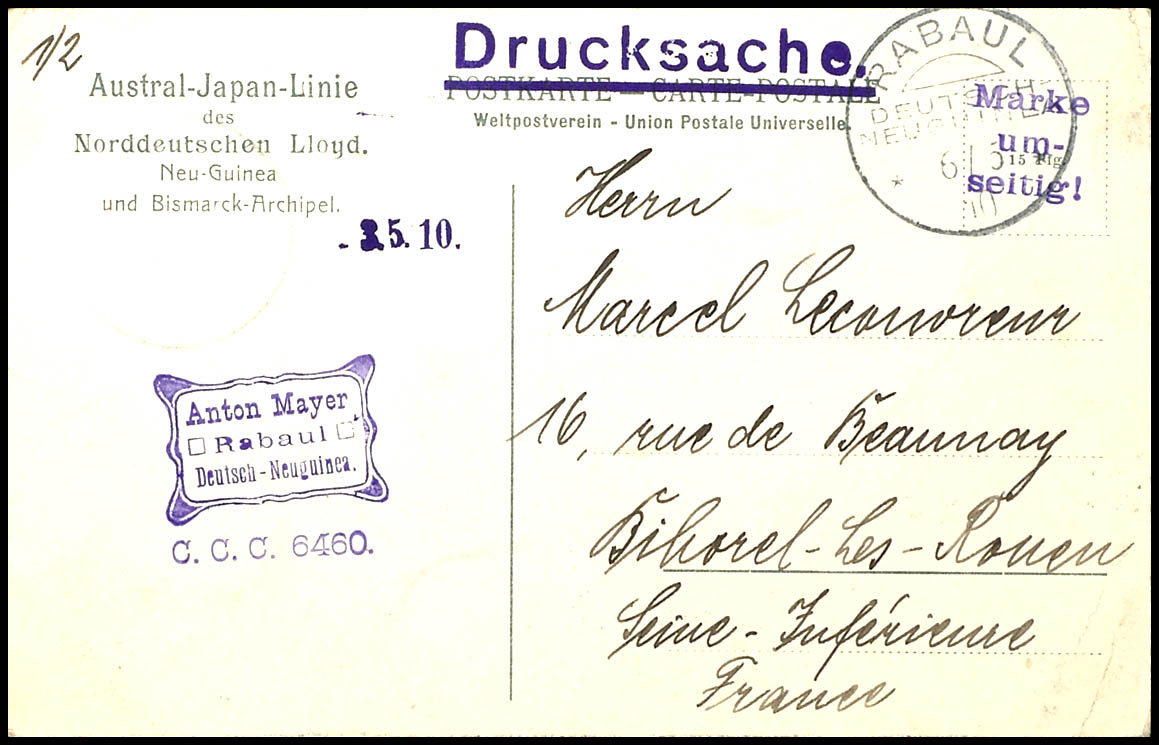 1/2
Drucksache.
Austral-Japan-Linie
des
Norddeutschen Lloyd.
Neu-Guinea
und Bismarck-Archipel.
POSTKARTE — CARTE-POSTALE
Weltpostverein - Union Postale Universelle.
RABAUL
DEUTSCH
NEUGUINEA
6 5
10
*
15 Pfg.
Marke
um-
seitig!
5. 10.
Anton Mayer
Rabaul
Deutsch-Neuguinea.
C. C. C. 6460.
Herrn
Marcel Lecouvreur
16, rue de Beaunay
Bihorel-Les-Rouen
Seine-Inférieure
France